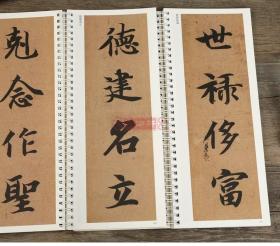 世禄侈富
德建名立
剋念作聖